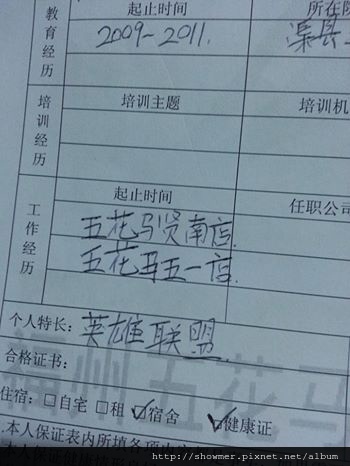 教育经历
起止时间
所在院
2009~2011.
渠县
培训经历
培训主题
培训机
工作经历
起止时间
任职公司
五花马贤南店.
五花马五一店.
个人特长: 英雄联盟.
合格证书:
福州五花马
住宿: □自宅 □租 ☑宿舍 ☑健康证
.本人保证表内所填各项内
http://showmer.pixnet.net/album